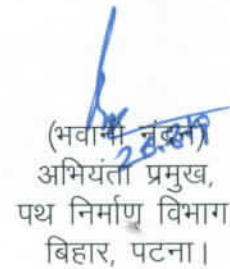 (भवानी नंदन)
अभियंता प्रमुख,
पथ निर्माण विभाग
बिहार, पटना।